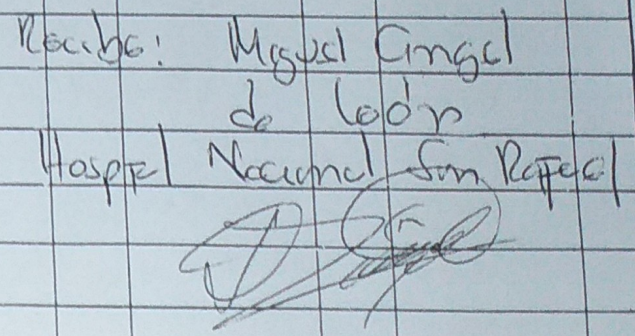 Recibe: Miguel Angel
de León
Hospital Nacional San Rafael